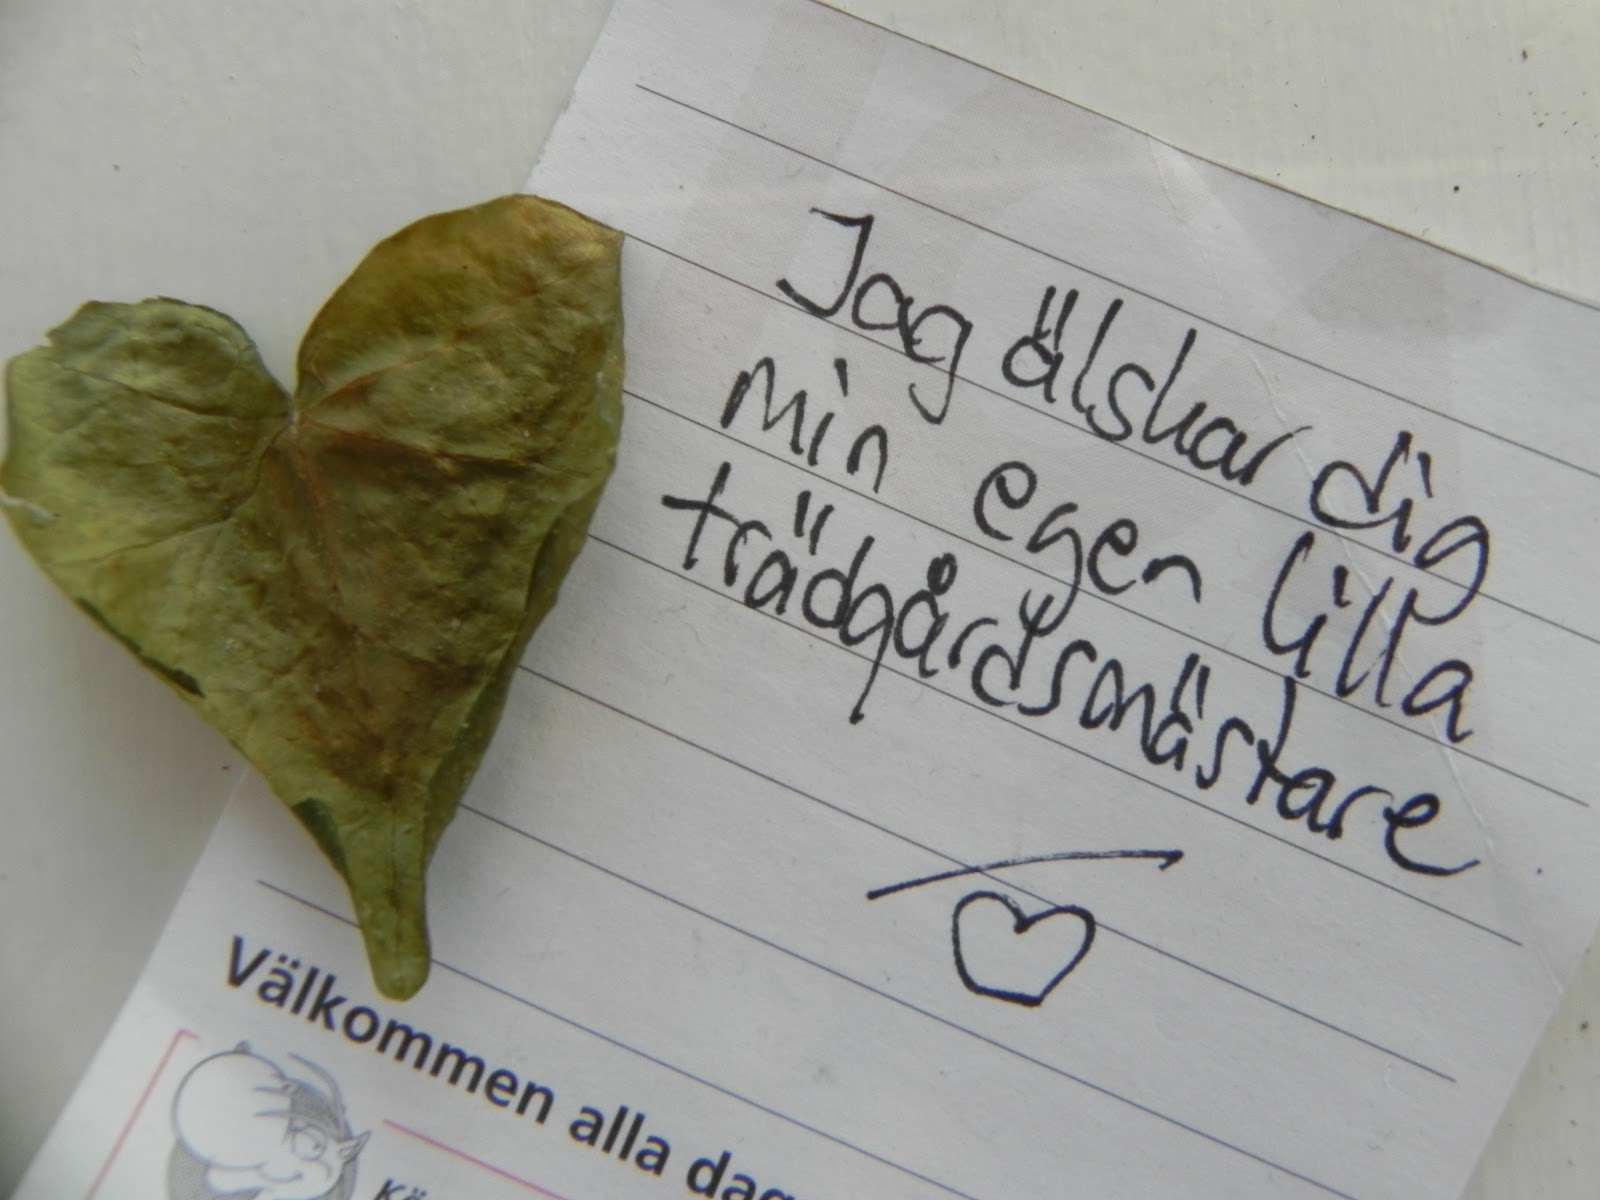 Jag älskar dig
min egen lilla
trädgårdsmästare
Välkommen alla